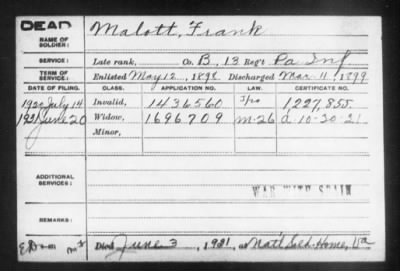 DEAD
NAME OF SOLDIER: Malott, Frank
SERVICE: Late rank, Co. B, 13 Reg't Pa Inf
TERM OF SERVICE: Enlisted May 12, 1898 Discharged Mar 11, 1899
DATE OF FILING. CLASS. APPLICATION NO. LAW. CERTIFICATE NO.
1920 July 14 Invalid, 1436560 1227,855
1921 June 20 Widow, 1696709 M-26 a-10-20-21
Minor,
ADDITIONAL SERVICES:
WAR WITH SPAIN
REMARKS:
Died June 3, 1921, at Nat'l Sold. Home, Va